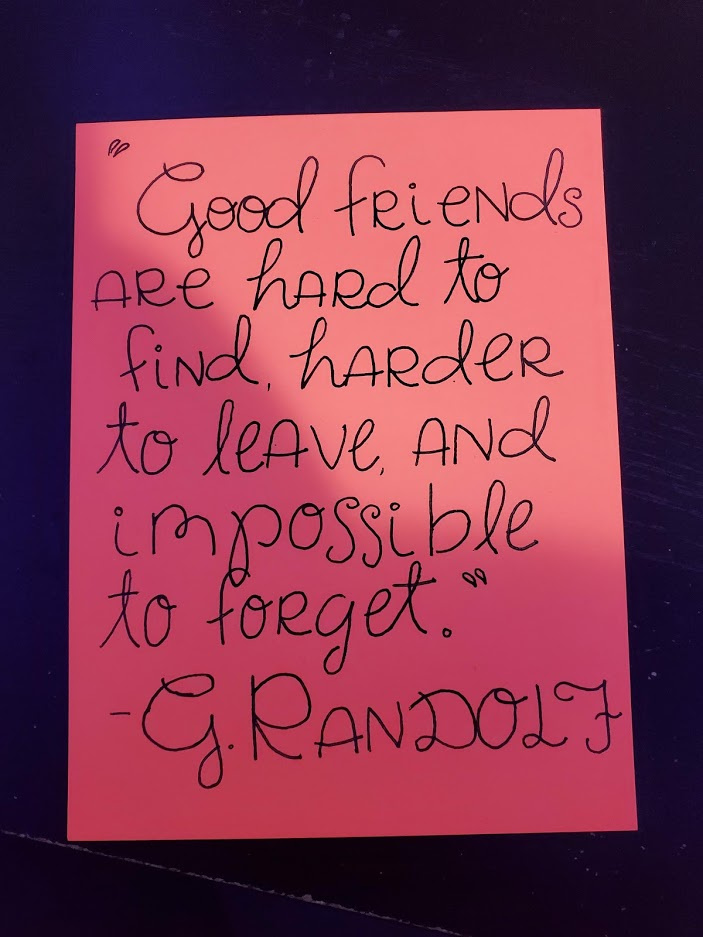 "Good friends
are hard to
find, harder
to leave, and
impossible
to forget."
-G. RANDOLF